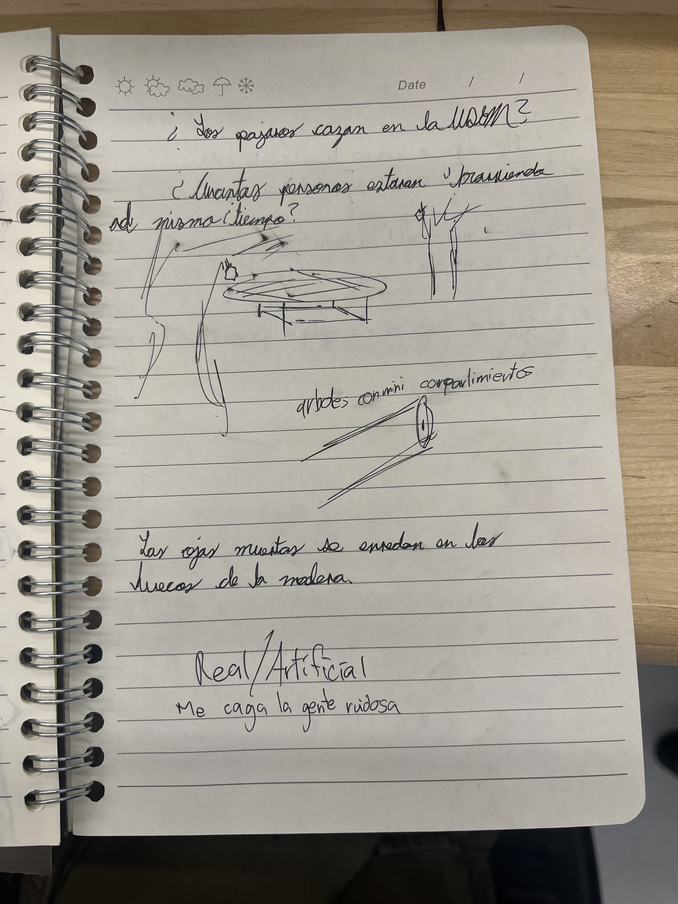 Date / /
¿Los pajaros cazan en la UDEM?
¿Cuantas personas estaran
al mismo tiempo?
arboles con mini compartimientos
Las ojas muertas se enredan en los
huecos de la madera.
Real/Artificial
Me caga la gente ruidosa